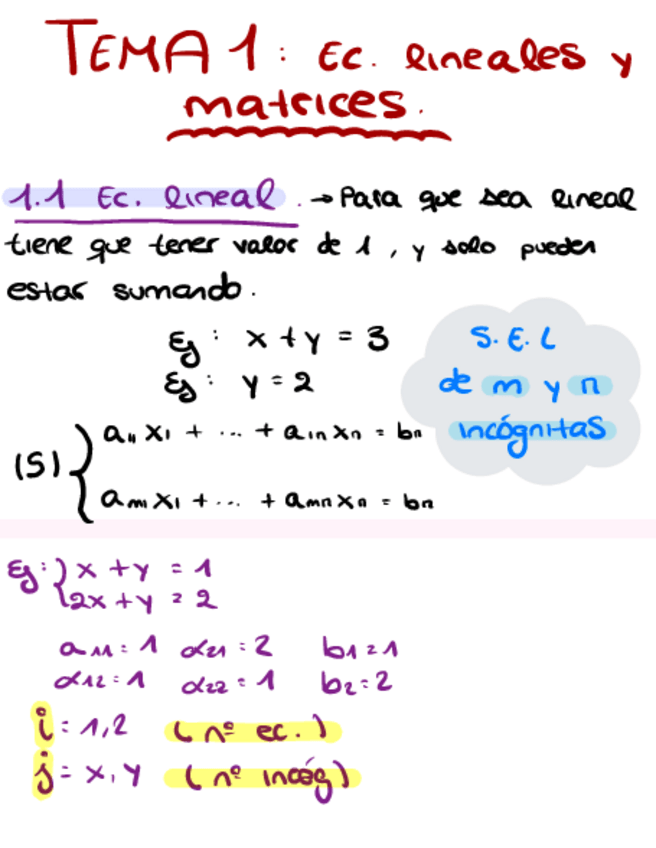 TEMA 1: Ec. lineales y
matrices.
1.1 Ec. lineal. → Para que sea lineal
tiene que tener valor de 1, y solo pueden
estar sumando.
Ej: x + y = 3
Ej: y = 2
S.E.L
de m y n
incógnitas
(S) { a11 x1 + ... + a1n xn = bn
am1 x1 + ... + amn xn = bn
Ej: { x + y = 1
2x + y = 2
a11 = 1 a21 = 2 b1 = 1
a12 = 1 a22 = 1 b2 = 2
i = 1,2 (nº ec.)
j = x, y (nº incóg)